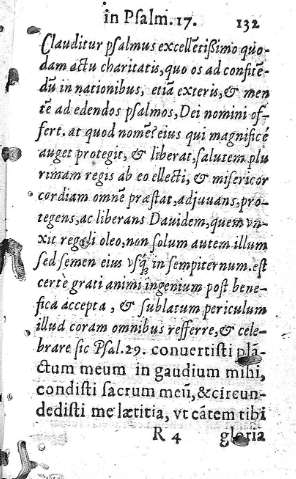 in Psalm. 17. 132
Clauditur psalmus excellẽtißimo quo-
dam actu charitatis, quo os ad confitẽ-
dũ in nationibus, etiã exteris, & men
tẽ ad edendos psalmos, Dei nomini of-
fert. at quod nomẽ? eius qui magnificè
auget protegit, & liberat, salutem plu
rimam regis ab eo electi, & misericor
cordiam omnẽ præstat, adjuuans, pro-
tegens, ac liberans Dauidem, quem vn-
xit regali oleo, non solum autem illum
sed semen eius vsq; in sempiternum. est
certe grati animi ingenium post bene-
fica accepta, & sublatum periculum
illud coram omnibus refferre, & cele-
brare sic Psal. 29. conuertisti plã-
ctum meum in gaudium mihi,
condisti sacrum meũ, & circun-
dedisti me lætitia, vt cãtem tibi
R 4 gloria